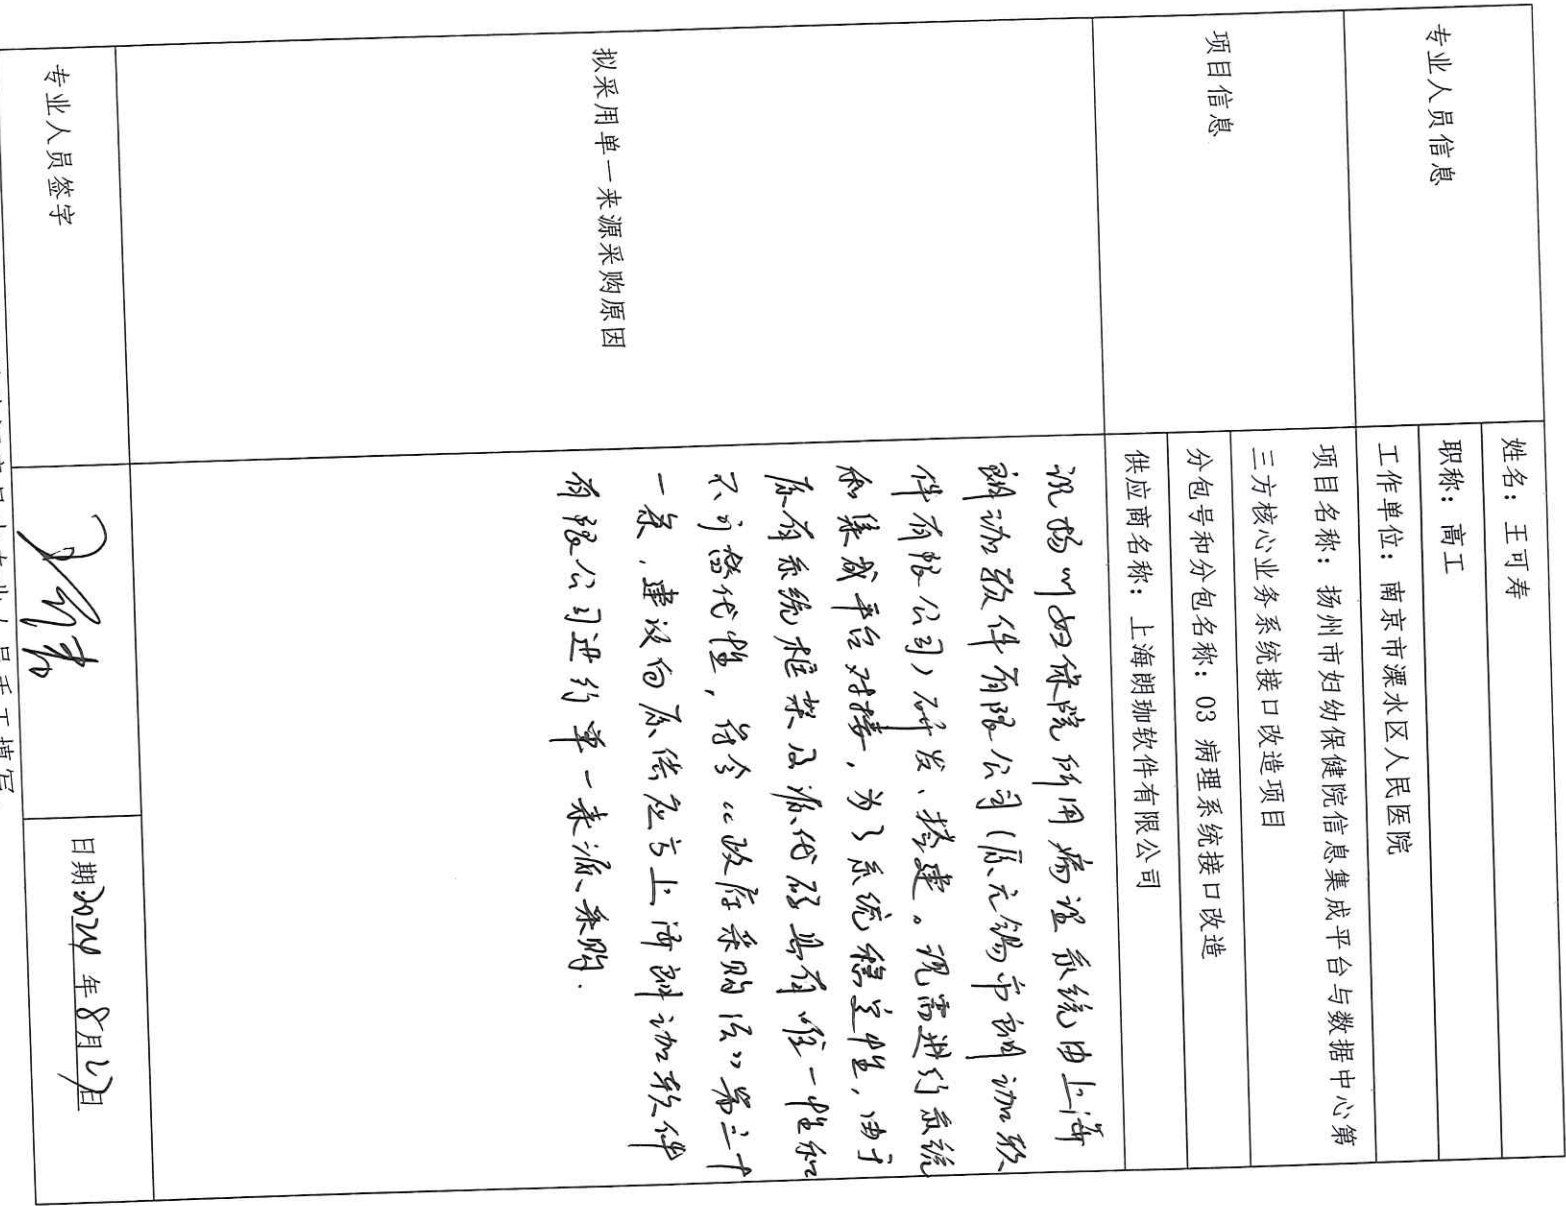 专业人员信息
姓名：王可寿
职称：高工
工作单位：南京市溧水区人民医院
项目信息
项目名称：扬州市妇幼保健院信息集成平台与数据中心第
三方核心业务系统接口改造项目
分包号和分包名称：03 病理系统接口改造
供应商名称：上海朗珈软件有限公司
拟采用单一来源采购原因
现扬州妇保院所用病理系统由上海
朗珈软件有限公司（原无锡市朗珈软
件有限公司）研发、搭建。现需进行系统
和集成平台对接，为了系统稳定性，由于
原有系统框架及源代码具有唯一性和
不可替代性，符合《政府采购法》第三十
一条，建议向原供应商上海朗珈软件
有限公司进行单一来源采购.
专业人员签字
日期:2024年8月27日
专业人员手工填写